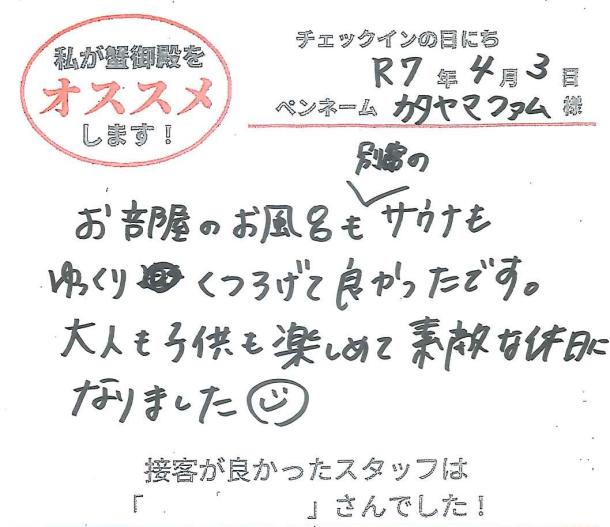 私が蟹御殿を
オススメ
します！
チェックインの日にち
R7年4月3日
ペンネーム カタヤマファム様
別の
お部屋のお風呂もサウナも
ゆっくり くつろげて良かったです。
大人も子供も楽しめて素敵な休日に
なりました
接客が良かったスタッフは
「 」さんでした！